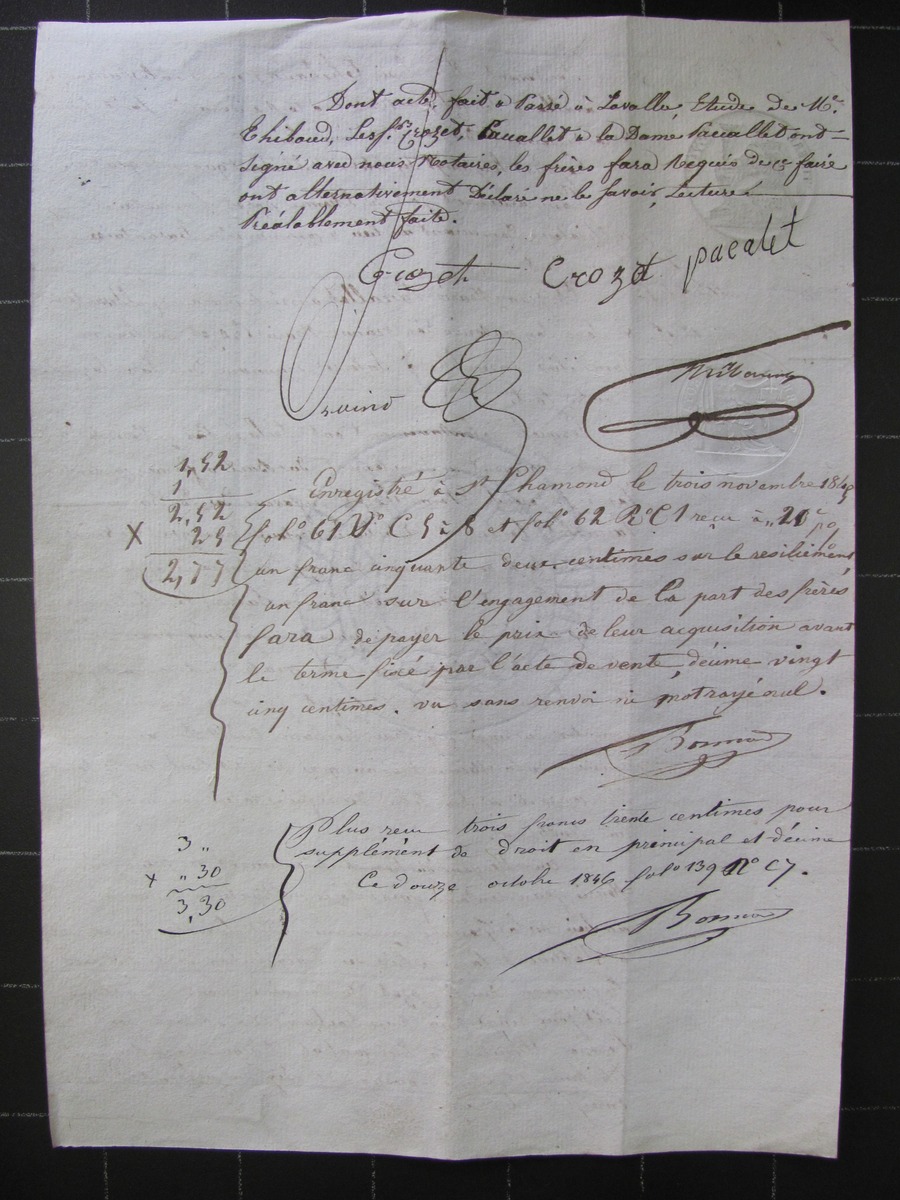 Dont acte, fait & Passé à Lavalla, Etude de Me.
Thibaud, Les frs Crozet, Pacallet & la Dame Pacallet ont
signé avec nous Notaires, les frères fara Requis de ce faire
ont alternativement Déclaré ne le savoir, Lecture
Préalablement faite.
Crozet Crozet pacalet
Thibaud
1,52
1,
2,52
X 25
2,77
Enregistré à St Chamond le trois novembre
folo 61 Vo C 5 à 8 et folo 62 Ro C 1 reçu à
un franc cinquante deux centimes sur le resiliement
un franc sur l'engagement de la part des frères
fara de payer le prix de leur acquisition avant
le terme fixé par l'acte de vente, décime vingt
cinq centimes. vu sans renvoi ni mot rayé nul.
3 "
x " 30
3,30
Plus reçu trois francs trente centimes pour
supplément de droit en principal et décime
Ce douze octobre 1846 folo 139 Ro C 7.